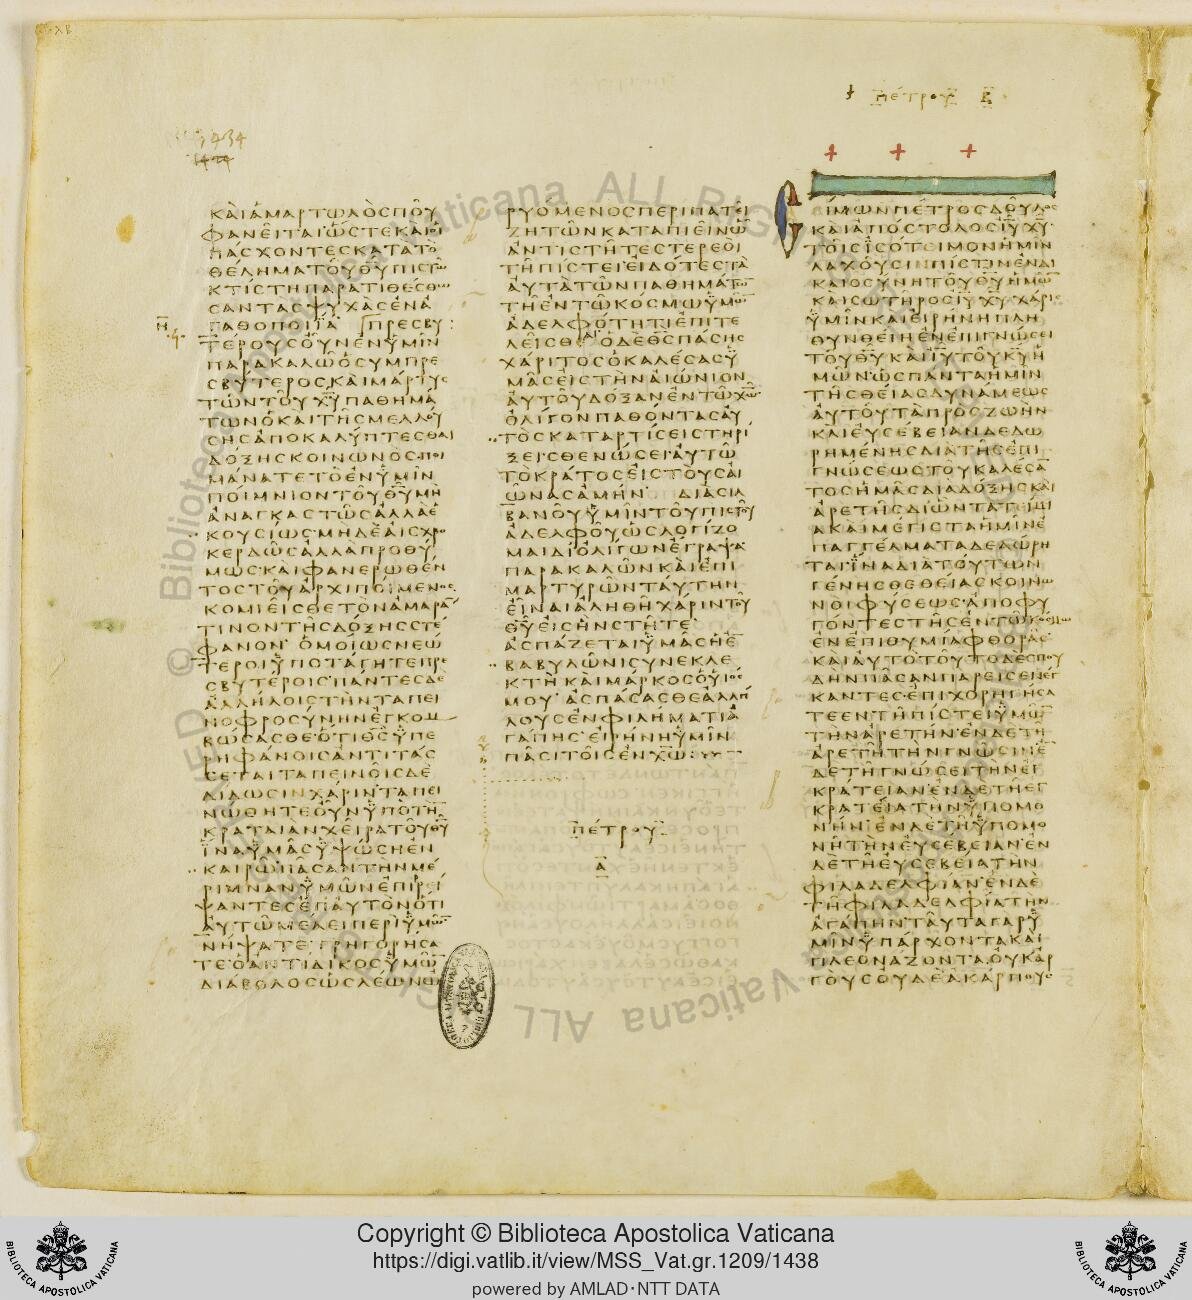 ϯ πέτρου Β
1434
ΚΑΙΑΜΑΡΤΩΛΟΣΠΟΥ
ΦΑΝΕΙΤΑΙΩΣΤΕΚΑΙΟΙ
ΠΑΣΧΟΝΤΕΣΚΑΤΑΤΟ
ΘΕΛΗΜΑΤΟΥΘΥΠΙΣΤΩ
ΚΤΙΣΤΗΠΑΡΑΤΙΘΕΣΘΩ
ΣΑΝΤΑΣΨΥΧΑΣΕΝΑ
Η ΓΑΘΟΠΟΙΙΑ ΠΡΕΣΒΥ
ΤΕΡΟΥΣΟΥΝΕΝΥΜΙΝ
ΠΑΡΑΚΑΛΩΟΣΥΜΠΡΕ
ΣΒΥΤΕΡΟΣΚΑΙΜΑΡΤΥΣ
ΤΩΝΤΟΥΧΥΠΑΘΗΜΑ
ΤΩΝΟΚΑΙΤΗΣΜΕΛΛΟΥ
ΣΗΣΑΠΟΚΑΛΥΠΤΕΣΘΑΙ
ΔΟΞΗΣΚΟΙΝΩΝΟΣΠΟΙ
ΜΑΝΑΤΕΤΟΕΝΥΜΙΝ
ΠΟΙΜΝΙΟΝΤΟΥΘΥΜΗ
ΑΝΑΓΚΑΣΤΩΣΑΛΛΑΕ
ΚΟΥΣΙΩΣΜΗΔΕΑΙΣΧΡΟ
ΚΕΡΔΩΣΑΛΛΑΠΡΟΘΥ
ΜΩΣΚΑΙΦΑΝΕΡΩΘΕΝ
ΤΟΣΤΟΥΑΡΧΙΠΟΙΜΕΝΟΣ
ΚΟΜΙΕΙΣΘΕΤΟΝΑΜΑΡΑ
ΤΙΝΟΝΤΗΣΔΟΞΗΣΣΤΕ
ΦΑΝΟΝ ΟΜΟΙΩΣΝΕΩ
ΤΕΡΟΙΥΠΟΤΑΓΗΤΕΠΡΕ
ΣΒΥΤΕΡΟΙΣΠΑΝΤΕΣΔΕ
ΑΛΛΗΛΟΙΣΤΗΝΤΑΠΕΙ
ΝΟΦΡΟΣΥΝΗΝΕΓΚΟΜ
ΒΩΣΑΣΘΕΟΤΙΘΣΥΠΕ
ΡΗΦΑΝΟΙΣΑΝΤΙΤΑΣ
ΣΕΤΑΙΤΑΠΕΙΝΟΙΣΔΕ
ΔΙΔΩΣΙΝΧΑΡΙΝΤΑΠΕΙ
ΝΩΘΗΤΕΟΥΝΥΠΟΤΗ
ΚΡΑΤΑΙΑΝΧΕΙΡΑΤΟΥΘΥ
ΙΝΑΥΜΑΣΥΨΩΣΗΕΝ
ΚΑΙΡΩΠΑΣΑΝΤΗΝΜΕ
ΡΙΜΝΑΝΥΜΩΝΕΠΙΡΕΙ
ΨΑΝΤΕΣΕΠΑΥΤΟΝΟΤΙ
ΑΥΤΩΜΕΛΕΙΠΕΡΙΥΜΩ
ΝΗΨΑΤΕ ΓΡΗΓΟΡΗΣΑ
ΤΕΟΑΝΤΙΔΙΚΟΣΥΜΩ
ΔΙΑΒΟΛΟΣΩΣΛΕΩΝΩ
ΡΥΟΜΕΝΟΣΠΕΡΙΠΑΤΕΙ
ΖΗΤΩΝΚΑΤΑΠΙΕΙΝΩ
ΑΝΤΙΣΤΗΤΕΣΤΕΡΕΟΙ
ΤΗΠΙΣΤΕΙΕΙΔΟΤΕΣΤΑ
ΑΥΤΑΤΩΝΠΑΘΗΜΑΤΩ
ΤΗΕΝΤΩΚΟΣΜΩΥΜΩ
ΑΔΕΛΦΟΤΗΤΙΕΠΙΤΕ
ΛΕΙΣΘΑΙΟΔΕΘΣΠΑΣΗΣ
ΧΑΡΙΤΟΣΟΚΑΛΕΣΑΣΥ
ΜΑΣΕΙΣΤΗΝΑΙΩΝΙΟΝ
ΑΥΤΟΥΔΟΞΑΝΕΝΤΩΧΩ
ΟΛΙΓΟΝΠΑΘΟΝΤΑΣΑΥ
ΤΟΣΚΑΤΑΡΤΙΣΕΙΣΤΗΡΙ
ΞΕΙΣΘΕΝΩΣΕΙΑΥΤΩ
ΤΟΚΡΑΤΟΣΕΙΣΤΟΥΣΑΙ
ΩΝΑΣΑΜΗΝ ΔΙΑΣΙΛ
ΒΑΝΟΥΥΜΙΝΤΟΥΠΙΣΤΟΥ
ΑΔΕΛΦΟΥΩΣΛΟΓΙΖΟ
ΜΑΙΔΙΟΛΙΓΩΝΕΓΡΑΨΑ
ΠΑΡΑΚΑΛΩΝΚΑΙΕΠΙ
ΜΑΡΤΥΡΩΝΤΑΥΤΗΝ
ΕΙΝΑΙΑΛΗΘΗΧΑΡΙΝΤΟΥ
ΘΥΕΙΣΗΝΣΤΗΤΕ
ΑΣΠΑΖΕΤΑΙΥΜΑΣΗΕ
ΒΑΒΥΛΩΝΙΣΥΝΕΚΛΕ
ΚΤΗΚΑΙΜΑΡΚΟΣΟΥΙΟΣ
ΜΟΥ ΑΣΠΑΣΑΣΘΕΑΛΛΗ
ΛΟΥΣΕΝΦΙΛΗΜΑΤΙΑ
ΓΑΠΗΣ ΕΙΡΗΝΗΥΜΙΝ
ΠΑΣΙΤΟΙΣΕΝΧΩ
ΠΕΤΡΟΥ
Α
ΣΙΜΩΝΠΕΤΡΟΣΔΟΥΛΟΣ
ΚΑΙΑΠΟΣΤΟΛΟΣΙΥΧΥ
ΤΟΙΣΙΣΟΤΕΙΜΟΝΗΜΙΝ
ΛΑΧΟΥΣΙΝΠΙΣΤΙΝΕΝΔΙ
ΚΑΙΟΣΥΝΗΤΟΥΘΥΗΜΩ
ΚΑΙΣΩΤΗΡΟΣΙΥΧΥΧΑΡΙΣ
ΥΜΙΝΚΑΙΕΙΡΗΝΗΠΛΗ
ΘΥΝΘΕΙΗΕΝΕΠΙΓΝΩΣΕΙ
ΤΟΥΘΥΚΑΙΙΥΤΟΥΚΥΗ
ΜΩΝΩΣΠΑΝΤΑΗΜΙΝ
ΤΗΣΘΕΙΑΣΔΥΝΑΜΕΩΣ
ΑΥΤΟΥΤΑΠΡΟΣΖΩΗΝ
ΚΑΙΕΥΣΕΒΕΙΑΝΔΕΔΩ
ΡΗΜΕΝΗΣΔΙΑΤΗΣΕΠΙ
ΓΝΩΣΕΩΣΤΟΥΚΑΛΕΣΑ
ΤΟΣΗΜΑΣΔΙΑΔΟΞΗΣΚΑΙ
ΑΡΕΤΗΣΔΙΩΝΤΑΤΙΜΙ
ΑΚΑΙΜΕΓΙΣΤΑΗΜΙΝΕ
ΠΑΓΓΕΛΜΑΤΑΔΕΔΩΡΗ
ΤΑΙΙΝΑΔΙΑΤΟΥΤΩΝ
ΓΕΝΗΣΘΕΘΕΙΑΣΚΟΙΝΩ
ΝΟΙΦΥΣΕΩΣΑΠΟΦΥ
ΓΟΝΤΕΣΤΗΣΕΝΤΩΚΟΣΜΩ
ΕΝΕΠΙΘΥΜΙΑΦΘΟΡΑΣ
ΚΑΙΑΥΤΟΤΟΥΤΟΔΕΣΠΟΥ
ΔΗΝΠΑΣΑΝΠΑΡΕΙΣΕΝΕΓ
ΚΑΝΤΕΣΕΠΙΧΟΡΗΓΗΣΑ
ΤΕΕΝΤΗΠΙΣΤΕΙΥΜΩ
ΤΗΝΑΡΕΤΗΝΕΝΔΕΤΗ
ΑΡΕΤΗΤΗΝΓΝΩΣΙΝΕ
ΔΕΤΗΓΝΩΣΕΙΤΗΝΕΓ
ΚΡΑΤΕΙΑΝΕΝΔΕΤΗΕΓ
ΚΡΑΤΕΙΑΤΗΝΥΠΟΜΟ
ΝΗΝΕΝΔΕΤΗΥΠΟΜΟ
ΝΗΤΗΝΕΥΣΕΒΕΙΑΝΕΝ
ΔΕΤΗΕΥΣΕΒΕΙΑΤΗΝ
ΦΙΛΑΔΕΛΦΙΑΝΕΝΔΕ
ΤΗΦΙΛΑΔΕΛΦΙΑΤΗΝ
ΑΓΑΠΗΝΤΑΥΤΑΓΑΡΥ
ΜΙΝΥΠΑΡΧΟΝΤΑΚΑΙ
ΠΛΕΟΝΑΖΟΝΤΑΟΥΚΑΡ
ΓΟΥΣΟΥΔΕΑΚΑΡΠΟΥΣ
Copyright © Biblioteca Apostolica Vaticana
https://digi.vatlib.it/view/MSS_Vat.gr.1209/1438
powered by AMLAD·NTT DATA